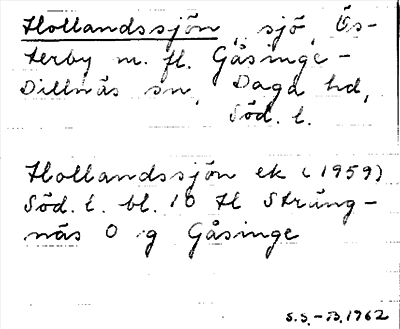 Hollandssjön, sjö, Ös-
terby m. fl. Gåsinge-
Dillnäs sn, Daga hd,
Söd. l.
Hollandssjön ek (1959)
Söd. l. bl. 10 H Sträng-
näs O g Gåsinge
S.S.-B. 1962